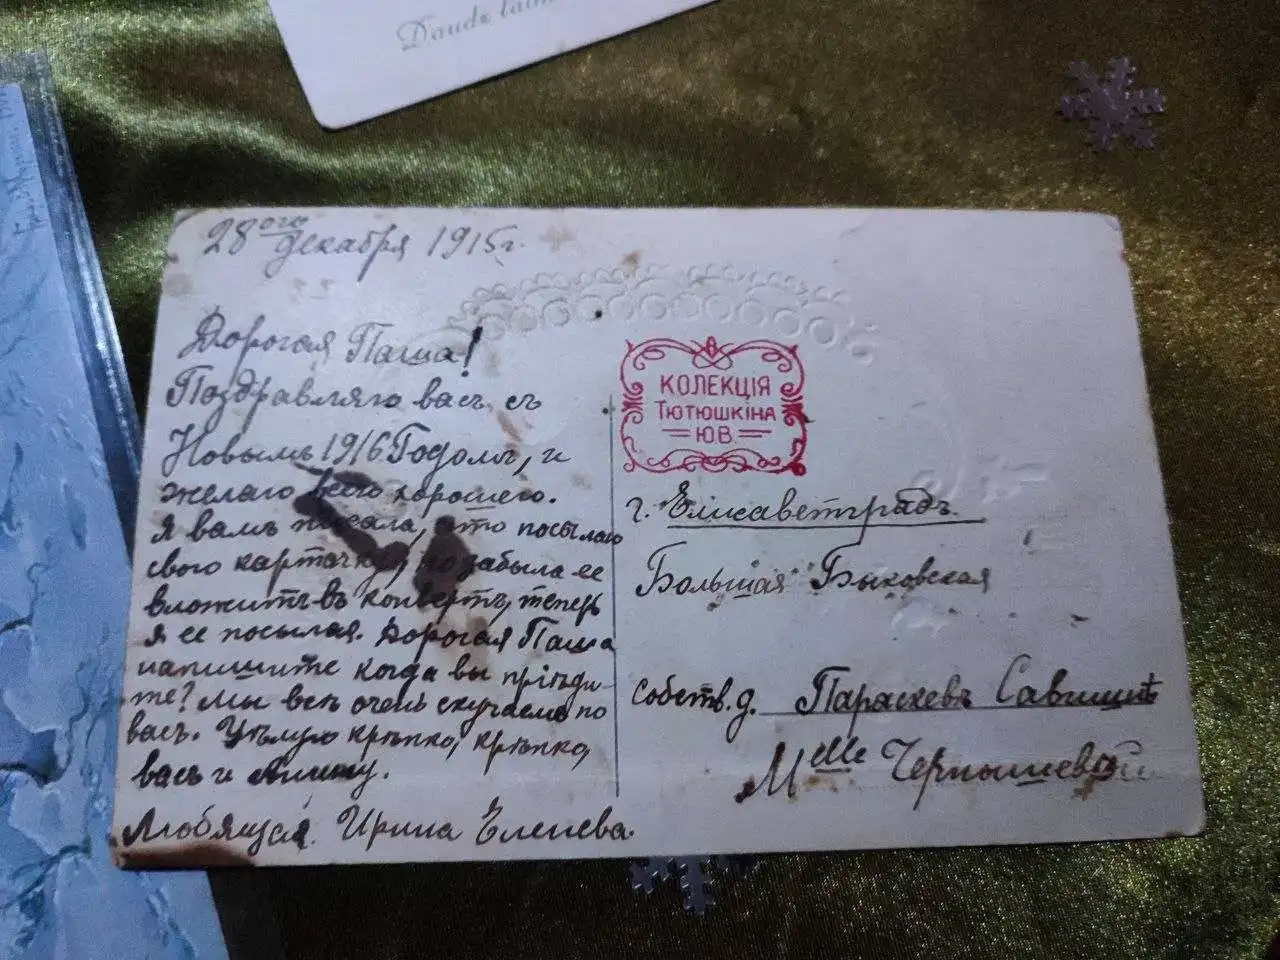 Daudz laim
28ого декабря 1915 г.
Дорогая Паша!
Поздравляю васъ съ
Новымъ 1916 Годомъ, и
желаю всего хорошего.
Я вамъ писала, что посылаю
свою карточку, но забыла ее
вложить въ конвертъ, теперь
я ее посылая. Дорогая Паша
напишите когда вы пріѣди-
те? Мы всѣ очень скучаемъ по
васъ. Цѣлую крѣпко, крѣпко,
васъ и
Любящая Ирина Елепева.
КОЛЕКЦІЯ
ТЮТЮШКІНА
Ю.В.
г. Елисаветградъ.
Большая Быковская
собств. д. Параскевъ Савицкѣ
Melle Чернышевой